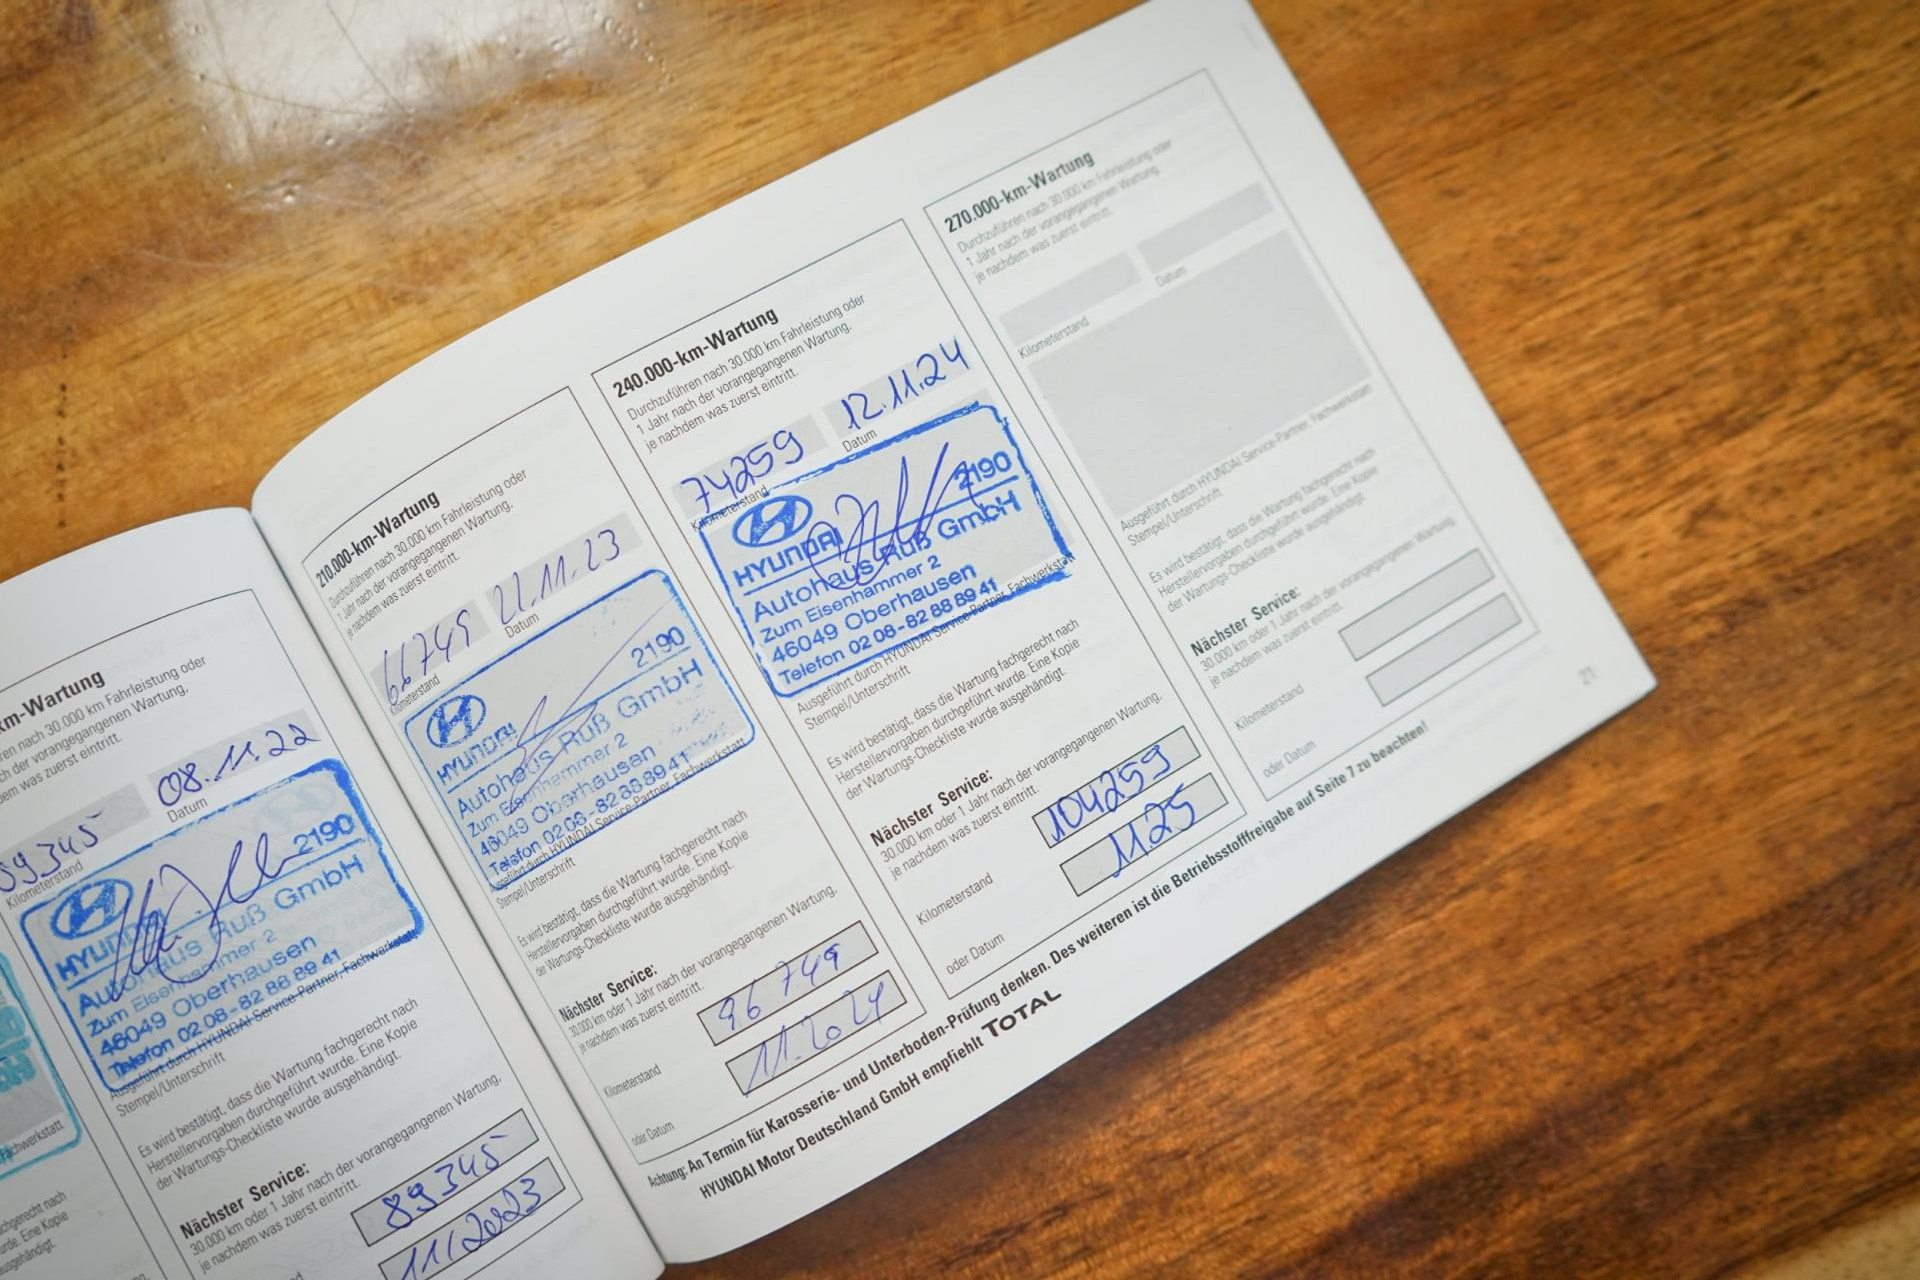 km-Wartung
ren nach 30.000 km Fahrleistung oder
ch der vorangegangenen Wartung,
dem was zuerst eintritt.
59345
08.11.22
Kilometerstand
Datum
2190
HYUNDAI
Autohaus Ruß GmbH
Zum Eisenhammer 2
46049 Oberhausen
Telefon 02 08 - 82 88 89 41
Ausgeführt durch HYUNDAI Service-Partner, Fachwerkstatt
Stempel/Unterschrift
Es wird bestätigt, dass die Wartung fachgerecht nach
Herstellervorgaben durchgeführt wurde. Eine Kopie
der Wartungs-Checkliste wurde ausgehändigt.
Nächster Service:
30.000 km oder 1 Jahr nach der vorangegangenen Wartung,
je nachdem was zuerst eintritt.
89345
11/2023
Fachwerkstatt
210.000-km-Wartung
Durchzuführen nach 30.000 km Fahrleistung oder
1 Jahr nach der vorangegangenen Wartung,
je nachdem was zuerst eintritt.
66749
22.11.23
Kilometerstand
Datum
2190
HYUNDAI
Autohaus Ruß GmbH
Zum Eisenhammer 2
46049 Oberhausen
Telefon 02 08 - 82 88 89 41
Ausgeführt durch HYUNDAI Service-Partner, Fachwerkstatt
Stempel/Unterschrift
Es wird bestätigt, dass die Wartung fachgerecht nach
Herstellervorgaben durchgeführt wurde. Eine Kopie
der Wartungs-Checkliste wurde ausgehändigt.
Nächster Service:
30.000 km oder 1 Jahr nach der vorangegangenen Wartung,
je nachdem was zuerst eintritt.
96749
Kilometerstand
11.2024
oder Datum
240.000-km-Wartung
Durchzuführen nach 30.000 km Fahrleistung oder
1 Jahr nach der vorangegangenen Wartung,
je nachdem was zuerst eintritt.
74259
12.11.24
Kilometerstand
Datum
2190
HYUNDAI
Autohaus Ruß GmbH
Zum Eisenhammer 2
46049 Oberhausen
Telefon 02 08 - 82 88 89 41
Ausgeführt durch HYUNDAI Service-Partner, Fachwerkstatt
Stempel/Unterschrift
Es wird bestätigt, dass die Wartung fachgerecht nach
Herstellervorgaben durchgeführt wurde. Eine Kopie
der Wartungs-Checkliste wurde ausgehändigt.
Nächster Service:
30.000 km oder 1 Jahr nach der vorangegangenen Wartung,
je nachdem was zuerst eintritt.
104259
Kilometerstand
11.25
oder Datum
270.000-km-Wartung
Durchzuführen nach 30.000 km Fahrleistung oder
1 Jahr nach der vorangegangenen Wartung,
je nachdem was zuerst eintritt.
Kilometerstand
Datum
Ausgeführt durch HYUNDAI Service-Partner, Fachwerkstatt
Stempel/Unterschrift
Es wird bestätigt, dass die Wartung fachgerecht nach
Herstellervorgaben durchgeführt wurde. Eine Kopie
der Wartungs-Checkliste wurde ausgehändigt.
Nächster Service:
30.000 km oder 1 Jahr nach der vorangegangenen Wartung,
je nachdem was zuerst eintritt.
Kilometerstand
oder Datum
Achtung: An Termin für Karosserie- und Unterboden-Prüfung denken. Des weiteren ist die Betriebsstofffreigabe auf Seite 7 zu beachten!
HYUNDAI Motor Deutschland GmbH empfiehlt TOTAL
21